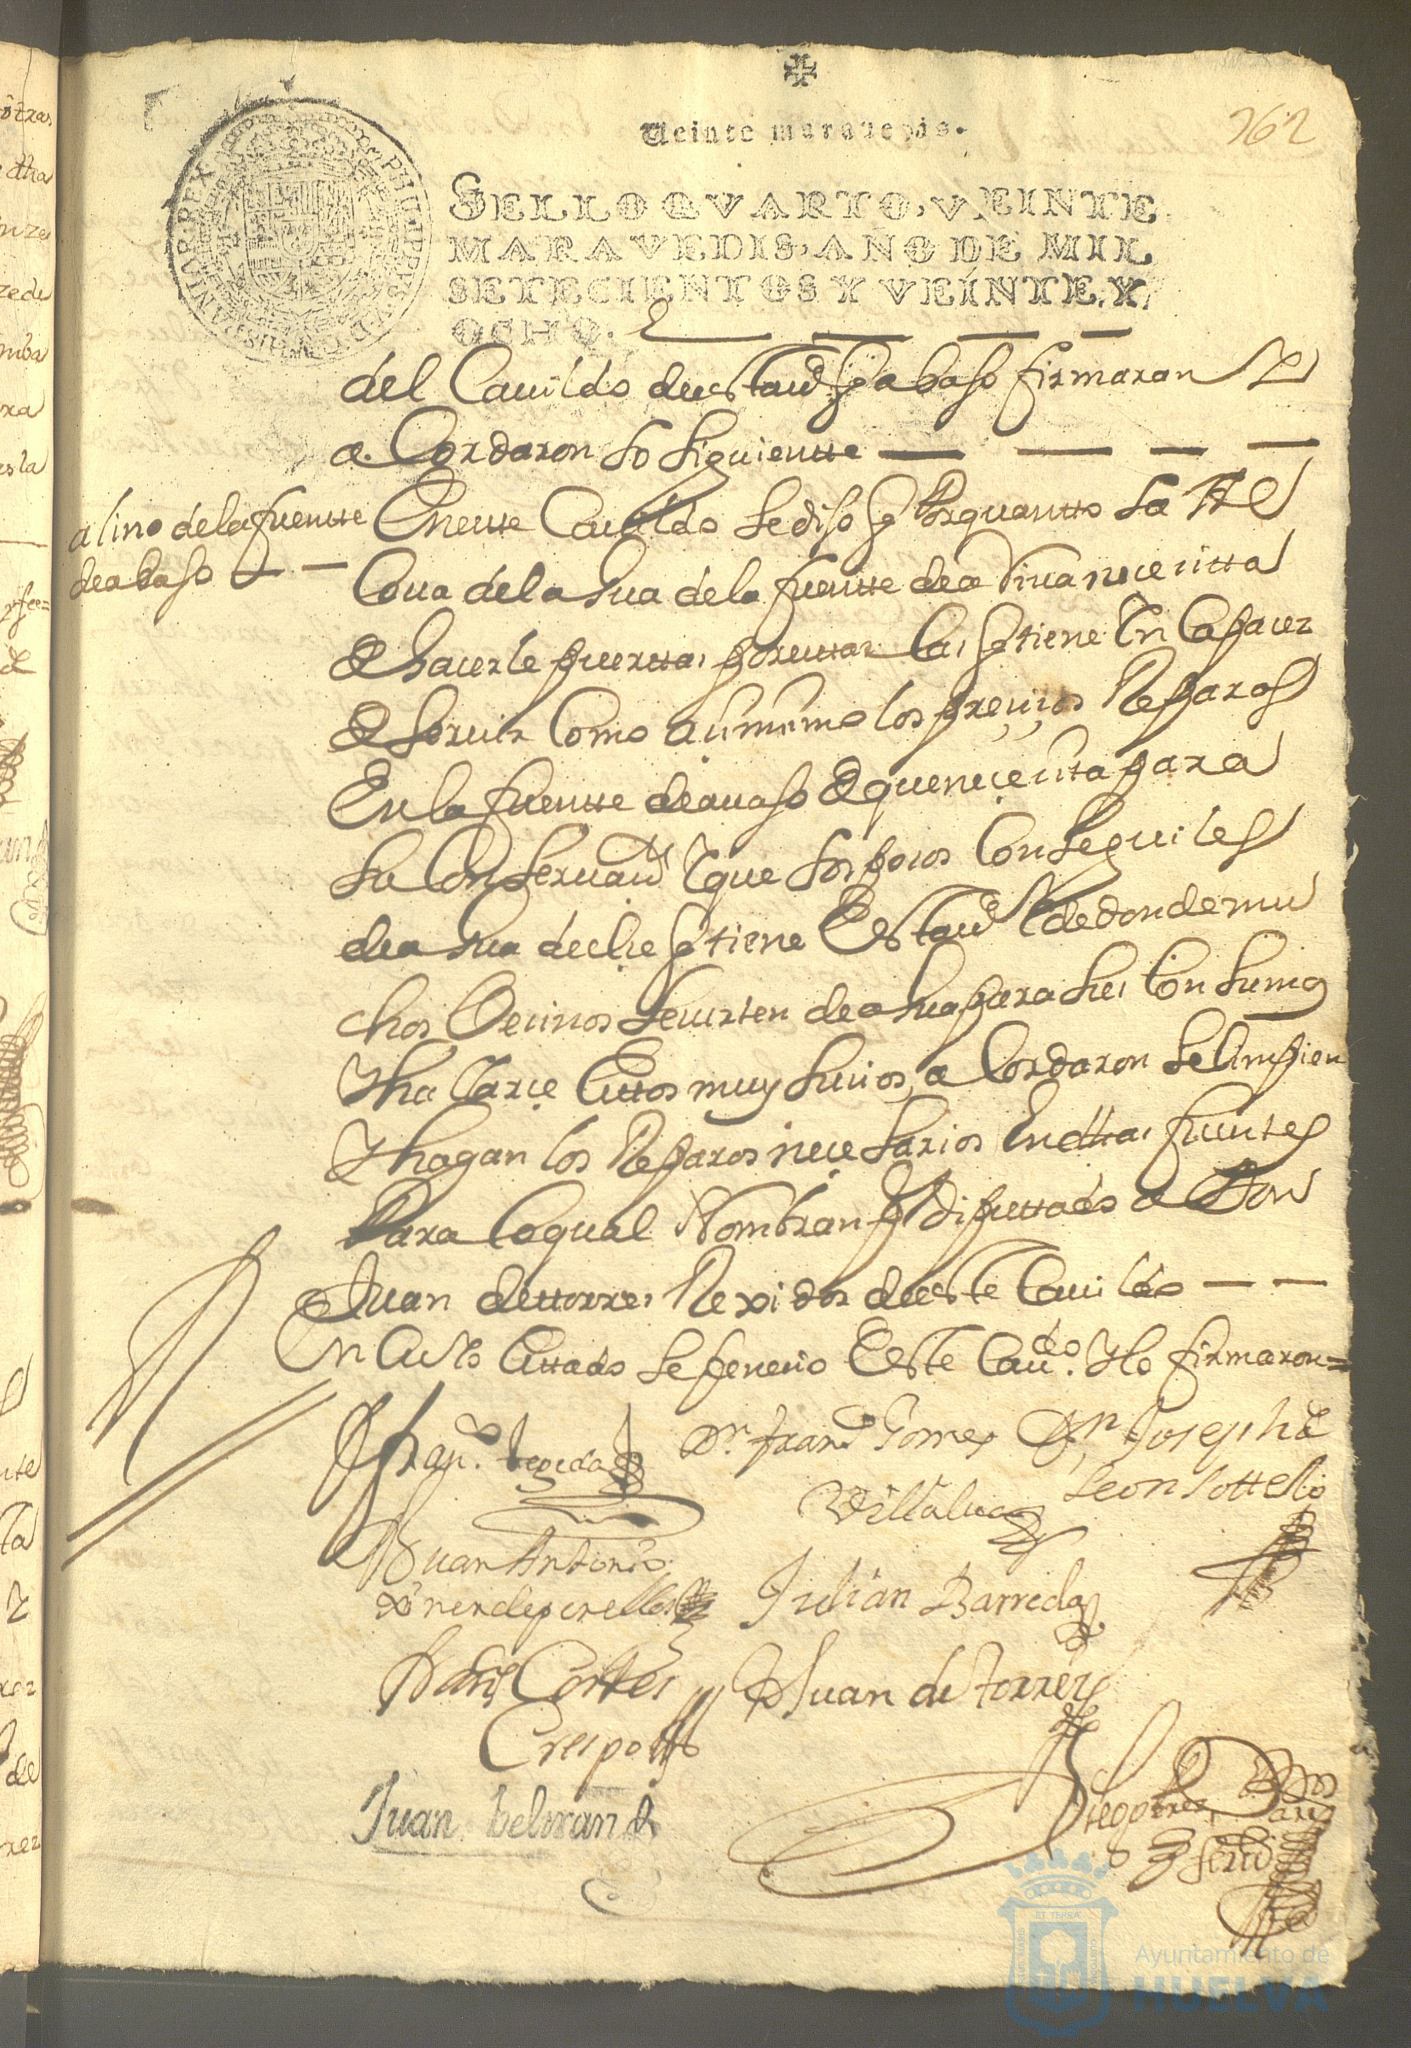 262
Veinte maravedis.
SELLO QVARTO, VEINTE
MARAVEDIS, AÑO DE MIL
SETECIENTOS Y VEINTE, Y
OCHO.
PHILIPPVS V D G HISPANIAR REX
del Cauildo desta uD q abaso firmaran Y
a Cordaron lo siguientte
aliño de la fuentte
de abaso
En este Cauildo se diso q Porquantto la
Coua del agua de la fuentte de a Riua neceçitta
de hacerle puerttas, por
de seruir Como asimismo los preçisos Reparos
En la fuentte de auaso de que neçeçita para
su Conseruaon Y que los pozos Conseguiles
de agua dulçe q tiene Esta uD de donde mu
chos Veçinos se uisten de agua para sus Consumo
Y ha llarçe Esttos muy suçios, a Cordaron se linpien
Y hagan los Reparos neçesarios En dttas fuentes
Para lo qual Nombran por diputtado a Don
Juan de ttorres Rexidor deeste Cauildo
En Cuyo Esttado se feneçio Este Caudo. Y lo firmaron=
Franco. tegeda
Dn. Franco Gomes
Villalua
Dn Joseph de
Leon sottello
Juan Antonio
Julian Barreda
Cortes
Crespo
D Juan de torres
Juan beltran
Diego
Ayuntamiento de
HUELVA